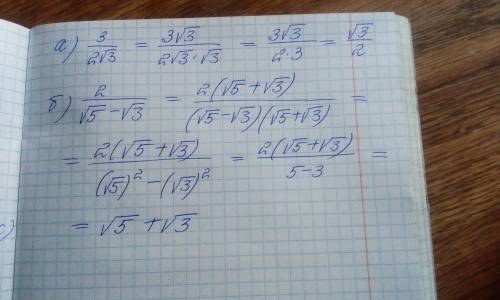 а) 3/(2√3) = 3√3/(2√3·√3) = 3√3/(2·3) = √3/2
б) 2/(√5−√3) = 2(√5+√3)/((√5−√3)(√5+√3)) =
= 2(√5+√3)/((√5)²−(√3)²) = 2(√5+√3)/(5−3) =
= √5+√3